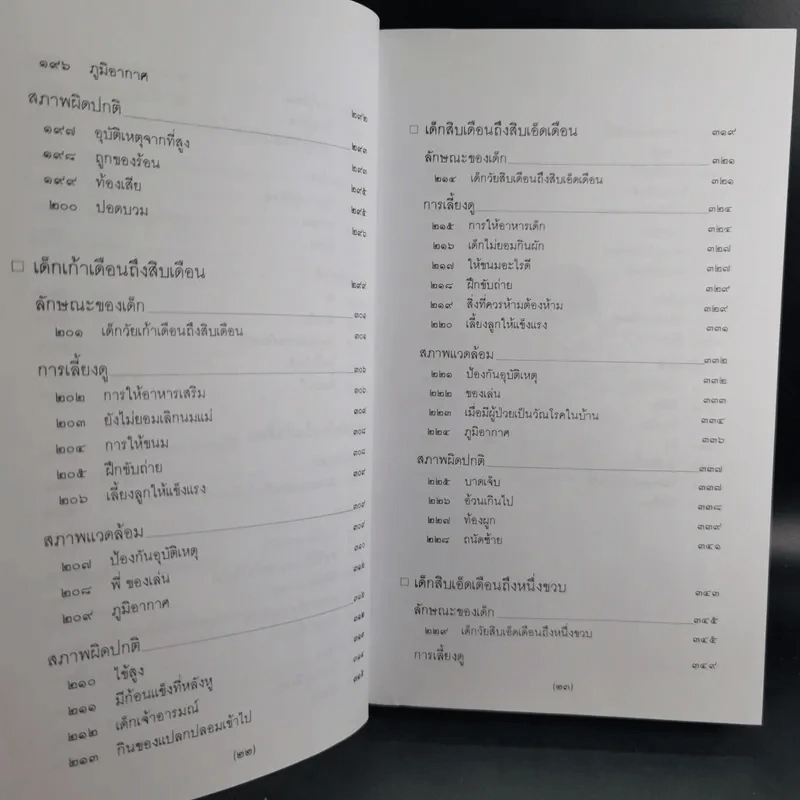 ๑๙๖ ภูมิอากาศ ๒๙๒
สภาพผิดปกติ ๒๙๓
๑๙๗ อุบัติเหตุจากที่สูง ๒๙๓
๑๙๘ ถูกของร้อน ๒๙๕
๑๙๙ ท้องเสีย ๒๙๕
๒๐๐ ปอดบวม ๒๙๖
เด็กเก้าเดือนถึงสิบเดือน ๒๙๙
ลักษณะของเด็ก ๓๐๑
๒๐๑ เด็กวัยเก้าเดือนถึงสิบเดือน ๓๐๑
การเลี้ยงดู ๓๐๖
๒๐๒ การให้อาหารเสริม ๓๐๖
๒๐๓ ยังไม่ยอมเลิกนมแม่
๒๐๔ การให้ขนม ๓๐๘
๒๐๕ ฝึกขับถ่าย ๓๐๘
๒๐๖ เลี้ยงลูกให้แข็งแรง ๓๐๙
สภาพแวดล้อม ๓๐๙
๒๐๗ ป้องกันอุบัติเหตุ ๓๐๙
๒๐๘ พี่ ของเล่น ๓๑๐
๒๐๙ ภูมิอากาศ
สภาพผิดปกติ
๒๑๐ ไข้สูง
๒๑๑ มีก้อนแข็งที่หลังหู
๒๑๒ เด็กเจ้าอารมณ์
๒๑๓ กินของแปลกปลอมเข้าไป
(๒๒)
เด็กสิบเดือนถึงสิบเอ็ดเดือน ๓๑๙
ลักษณะของเด็ก ๓๒๑
๒๑๔ เด็กวัยสิบเดือนถึงสิบเอ็ดเดือน ๓๒๑
การเลี้ยงดู ๓๒๔
๒๑๕ การให้อาหารเด็ก ๓๒๔
๒๑๖ เด็กไม่ยอมกินผัก ๓๒๗
๒๑๗ ให้ขนมอะไรดี ๓๒๗
๒๑๘ ฝึกขับถ่าย ๓๒๙
๒๑๙ สิ่งที่ควรห้ามต้องห้าม ๓๒๙
๒๒๐ เลี้ยงลูกให้แข็งแรง ๓๓๑
สภาพแวดล้อม ๓๓๒
๒๒๑ ป้องกันอุบัติเหตุ ๓๓๒
๒๒๒ ของเล่น ๓๓๓
๒๒๓ เมื่อมีผู้ป่วยเป็นวัณโรคในบ้าน ๓๓๔
๒๒๔ ภูมิอากาศ ๓๓๖
สภาพผิดปกติ ๓๓๗
๒๒๕ บาดเจ็บ ๓๓๗
๒๒๖ อ้วนเกินไป ๓๓๘
๒๒๗ ท้องผูก ๓๓๙
๒๒๘ ถนัดซ้าย ๓๔๑
เด็กสิบเอ็ดเดือนถึงหนึ่งขวบ ๓๔๓
ลักษณะของเด็ก ๓๔๕
๒๒๙ เด็กวัยสิบเอ็ดเดือนถึงหนึ่งขวบ ๓๔๕
การเลี้ยงดู ๓๔๙
(๒๓)